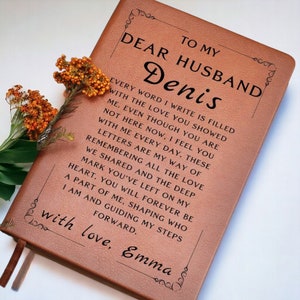 TO MY
DEAR HUSBAND
Denis
EVERY WORD I WRITE IS FILLED
WITH THE LOVE YOU SHOWED
ME. EVEN THOUGH YOU ARE
NOT HERE NOW, I FEEL YOU
WITH ME EVERY DAY. THESE
LETTERS ARE MY WAY OF
REMEMBERING ALL THE LOVE
WE SHARED AND THE DEEP
MARK YOU'VE LEFT ON MY
HEART. YOU WILL FOREVER BE
A PART OF ME, SHAPING WHO
I AM AND GUIDING MY STEPS
FORWARD.
with love, Emma